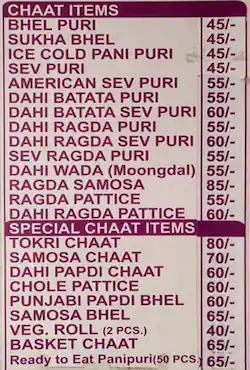 CHAAT ITEMS
BHEL PURI 45/-
SUKHA BHEL 45/-
ICE COLD PANI PURI 45/-
SEV PURI 45/-
AMERICAN SEV PURI 55/-
DAHI BATATA PURI 55/-
DAHI BATATA SEV PURI 60/-
DAHI RAGDA PURI 55/-
DAHI RAGDA SEV PURI 60/-
SEV RAGDA PURI 55/-
DAHI WADA (Moongdal) 55/-
RAGDA SAMOSA 85/-
RAGDA PATTICE 55/-
DAHI RAGDA PATTICE 60/-
SPECIAL CHAAT ITEMS
TOKRI CHAAT 80/-
SAMOSA CHAAT 70/-
DAHI PAPDI CHAAT 60/-
CHOLE PATTICE 60/-
PUNJABI PAPDI BHEL 60/-
SAMOSA BHEL 65/-
VEG. ROLL (2 PCS.) 40/-
BASKET CHAAT 65/-
Ready to Eat Panipuri(50 PCS.) 65/-